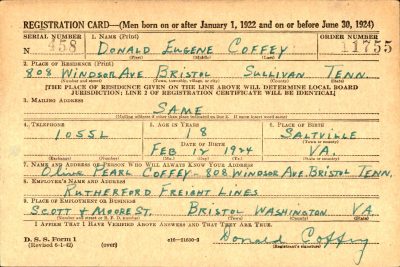 REGISTRATION CARD—(Men born on or after January 1, 1922 and on or before June 30, 1924)
SERIAL NUMBER 1. NAME (Print) ORDER NUMBER
N 458 DONALD EUGENE COFFEY 11755
(First) (Middle) (Last)
2. PLACE OF RESIDENCE (Print)
808 WINDSOR AVE BRISTOL SULLIVAN TENN.
(Number and street) (Town, township, village, or city) (County) (State)
[THE PLACE OF RESIDENCE GIVEN ON THE LINE ABOVE WILL DETERMINE LOCAL BOARD
JURISDICTION; LINE 2 OF REGISTRATION CERTIFICATE WILL BE IDENTICAL]
3. MAILING ADDRESS
SAME
(Mailing address if other than place indicated on line 2. If same insert word same)
4. TELEPHONE 5. AGE IN YEARS 6. PLACE OF BIRTH
1055L 18 SALTVILLE
DATE OF BIRTH (Town or county)
FEB 12 1924 VA.
(Exchange) (Number) (Mo.) (Day) (Yr.) (State or country)
7. NAME AND ADDRESS OF PERSON WHO WILL ALWAYS KNOW YOUR ADDRESS
OLIVE PEARL COFFEY - 808 WINDSOR AVE. BRISTOL TENN.
8. EMPLOYER'S NAME AND ADDRESS
RUTHERFORD FREIGHT LINES
9. PLACE OF EMPLOYMENT OR BUSINESS
SCOTT & MOORE ST. BRISTOL WASHINGTON VA.
(Number and street or R. F. D. number) (Town) (County) (State)
I AFFIRM THAT I HAVE VERIFIED ABOVE ANSWERS AND THAT THEY ARE TRUE.
D. S. S. Form 1
(Revised 6-1-42) (over) Donald Coffey
(Registrant's signature)